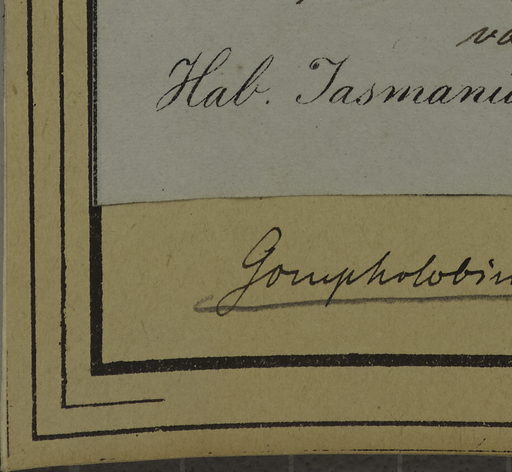 va
Hab. Tasmani
Gompholobi